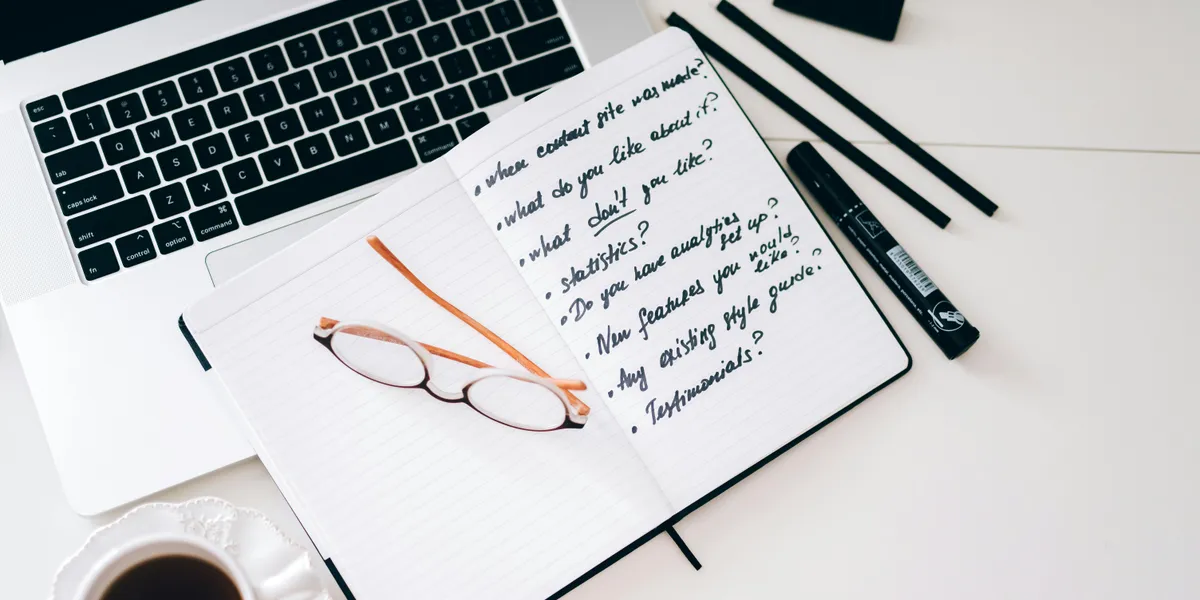 esc
! 1
@ 2
# 3
$ 4
% 5
^ 6
& 7
* 8
( 9
) 0
tab Q W E R T Y U I O P
return
caps lock A S D F G H J K L
shift Z X C V B N M
fn control option command
command
• when content site was made?
• what do you like about it?
• what don't you like?
• statistics?
• Do you have analytics
set up?
• New features you would
like?
• Any existing style guide?
• Testimonials?